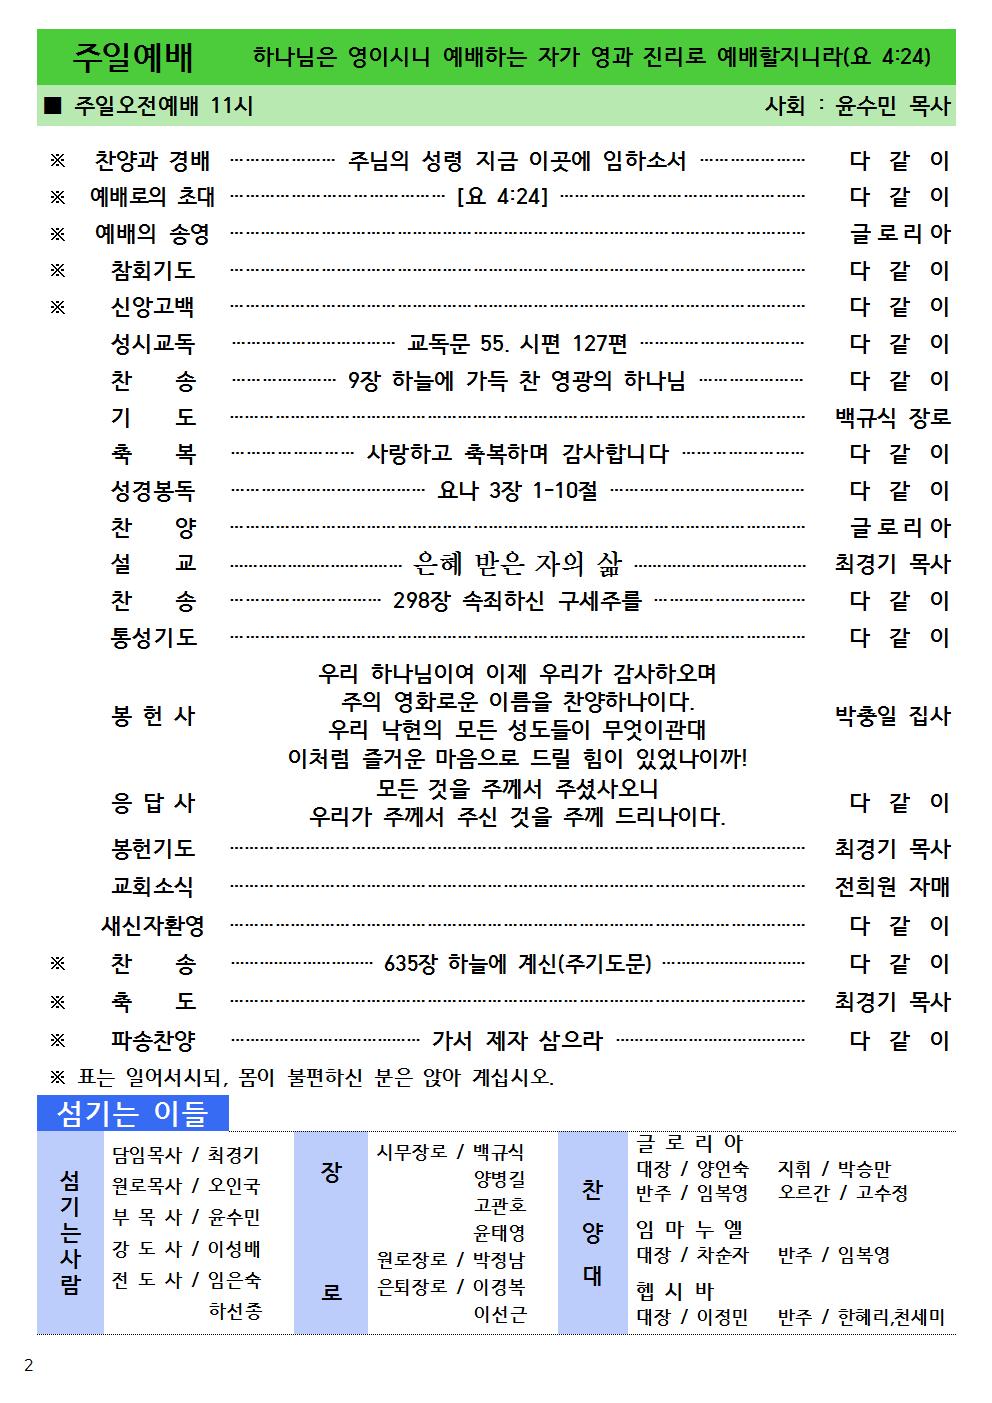 주일예배 하나님은 영이시니 예배하는 자가 영과 진리로 예배할지니라(요 4:24)
■ 주일오전예배 11시 사회 : 윤수민 목사
※ 찬양과 경배 ····················· 주님의 성령 지금 이곳에 임하소서 ····················· 다 같 이
※ 예배로의 초대 ····················· [요 4:24] ····················· 다 같 이
※ 예배의 송영 ····················· 글로리아
※ 참회기도 ····················· 다 같 이
※ 신앙고백 ····················· 다 같 이
성시교독 ····················· 교독문 55. 시편 127편 ····················· 다 같 이
찬 송 ····················· 9장 하늘에 가득 찬 영광의 하나님 ····················· 다 같 이
기 도 ····················· 백규식 장로
축 복 ····················· 사랑하고 축복하며 감사합니다 ····················· 다 같 이
성경봉독 ····················· 요나 3장 1-10절 ····················· 다 같 이
찬 양 ····················· 글로리아
설 교 ····················· 은혜 받은 자의 삶 ····················· 최경기 목사
찬 송 ····················· 298장 속죄하신 구세주를 ····················· 다 같 이
통성기도 ····················· 다 같 이
우리 하나님이여 이제 우리가 감사하오며
주의 영화로운 이름을 찬양하나이다.
봉 헌 사 우리 낙현의 모든 성도들이 무엇이관대 박충일 집사
이처럼 즐거운 마음으로 드릴 힘이 있었나이까!
모든 것을 주께서 주셨사오니
응 답 사 우리가 주께서 주신 것을 주께 드리나이다. 다 같 이
봉헌기도 ····················· 최경기 목사
교회소식 ····················· 전희원 자매
새신자환영 ····················· 다 같 이
※ 찬 송 ····················· 635장 하늘에 계신(주기도문) ····················· 다 같 이
※ 축 도 ····················· 최경기 목사
※ 파송찬양 ····················· 가서 제자 삼으라 ····················· 다 같 이
※ 표는 일어서시되, 몸이 불편하신 분은 앉아 계십시오.
섬기는 이들
섬기는사람
담임목사 / 최경기
원로목사 / 오인국
부 목 사 / 윤수민
강 도 사 / 이성배
전 도 사 / 임은숙
하선종
장로
시무장로 / 백규식
양병길
고관호
윤태영
원로장로 / 박정남
은퇴장로 / 이경복
이선근
찬양대
글 로 리 아
대장 / 양언숙 지휘 / 박승만
반주 / 임복영 오르간 / 고수정
임 마 누 엘
대장 / 차순자 반주 / 임복영
헵 시 바
대장 / 이정민 반주 / 한혜리,천세미
2